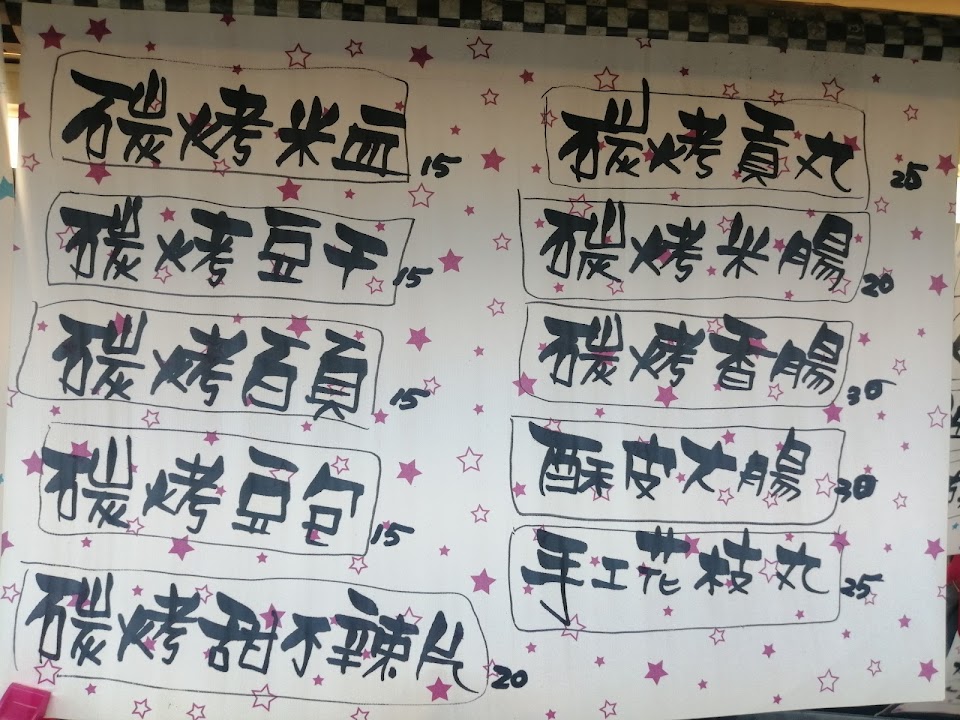 碳烤米血 15
碳烤豆干 15
碳烤百頁 15
碳烤豆包 15
碳烤甜不辣片 20
碳烤貢丸 25
碳烤米腸 20
碳烤香腸 30
酥皮大腸 30
手工花枝丸 25